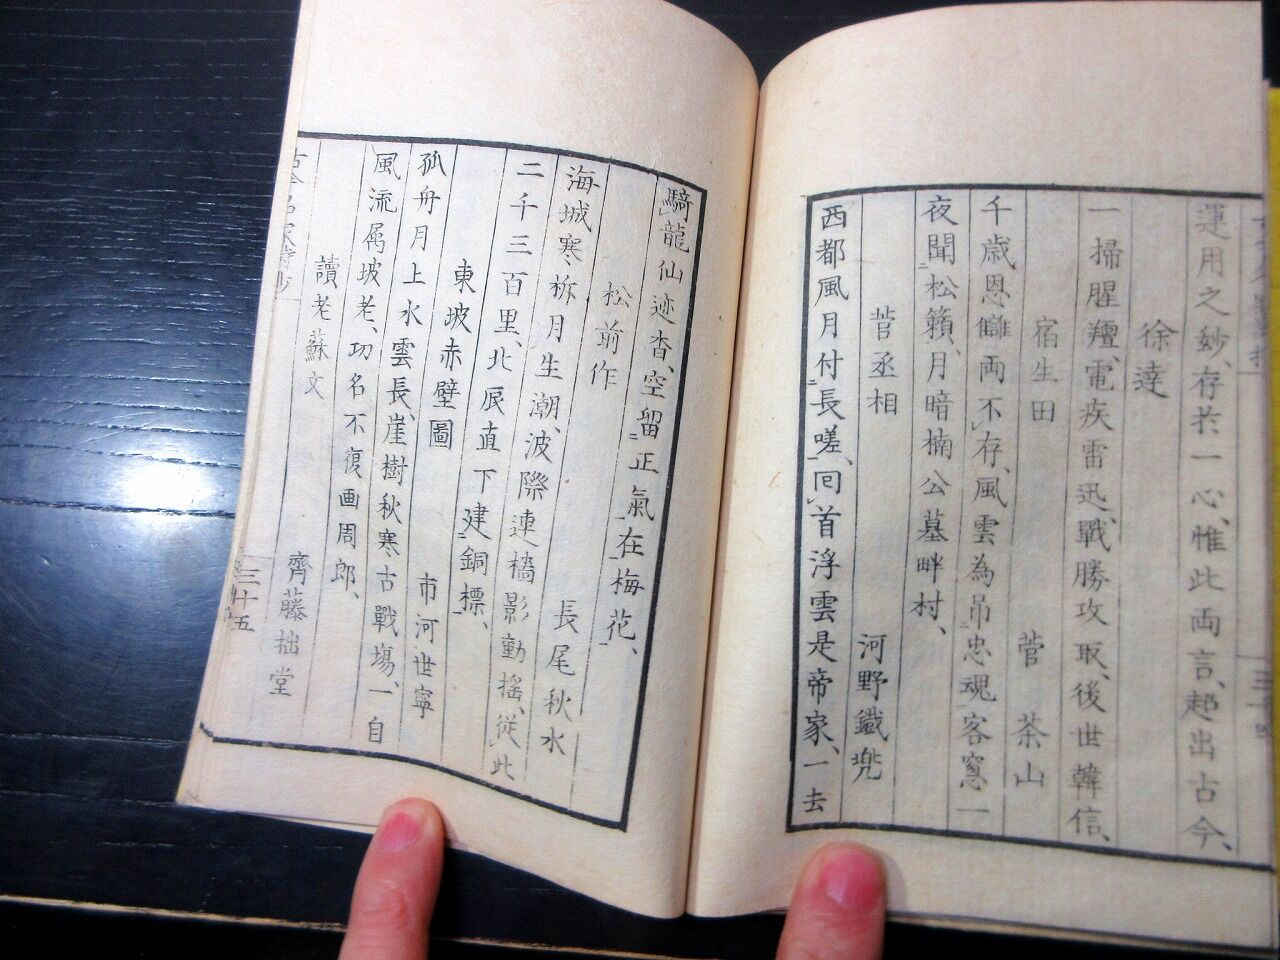 運用之妙、存於一心、惟此両言、超出古今、
徐達
一掃腥羶、電疾雷迅、戰勝攻取、後世韓信、
宿生田 菅茶山
千歳恩讎両不存、風雲為吊忠魂、客窓一
夜聞松籟、月暗楠公墓畔村、
菅丞相 河野鐵兜
西都風月付長嗟、回首浮雲是帝家、一去
騎龍仙迹杳、空留正氣在梅花、
松前作 長尾秋水
海城寒柝月生潮、波際連檣影動揺、従此
二千三百里、北辰直下建銅標、
東坡赤壁圖 市河世寧
孤舟月上水雲長、崖樹秋寒古戰場、一自
風流属坡老、功名不復画周郎、
讀老蘇文 齊藤拙堂
古今名家詩抄 三十五